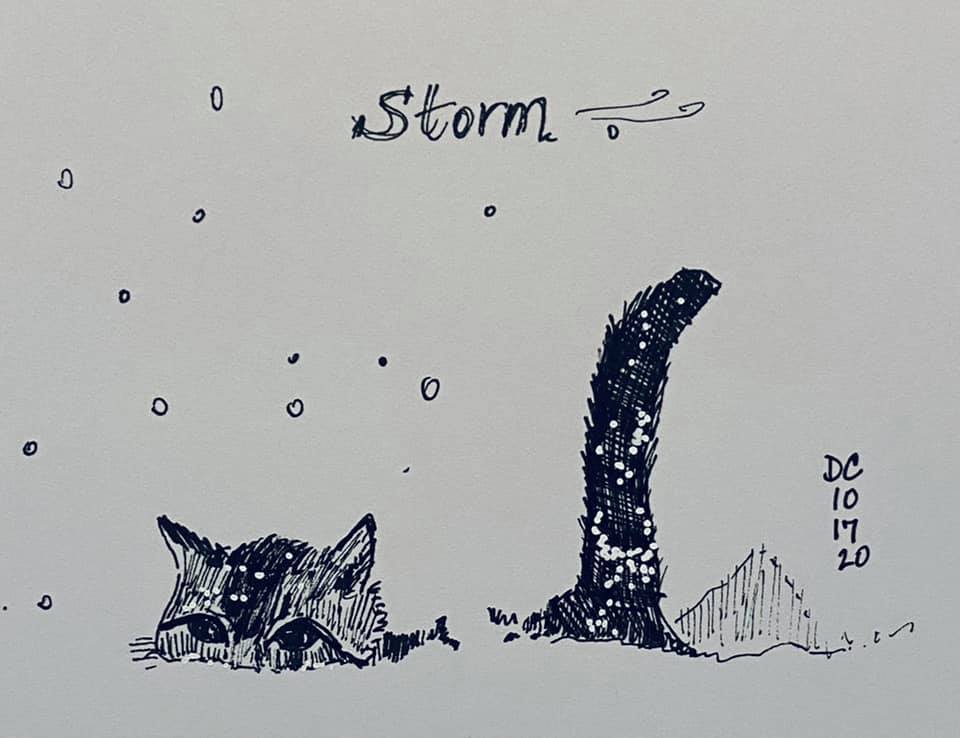 Storm
DC
10
17
20